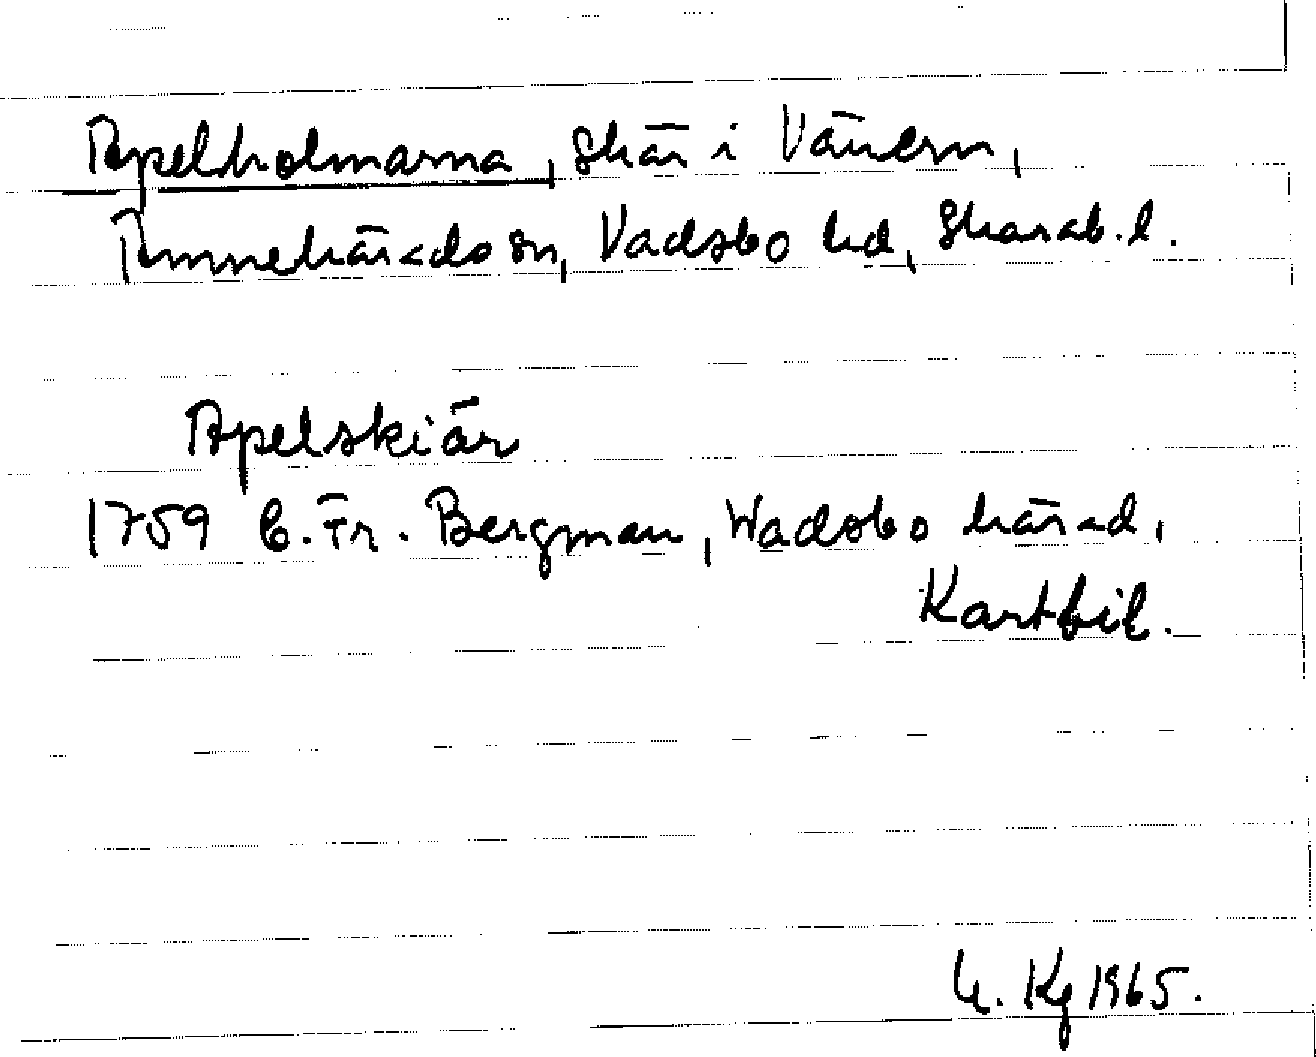 Apelholmarna, skär i Vänern,
Amnehärads sn, Vadsbo hd, Skarab. l.
Apelskiär
1759 C. Fr. Bergman, Wadsbo härad,
Kartbil.
Kg 1965.